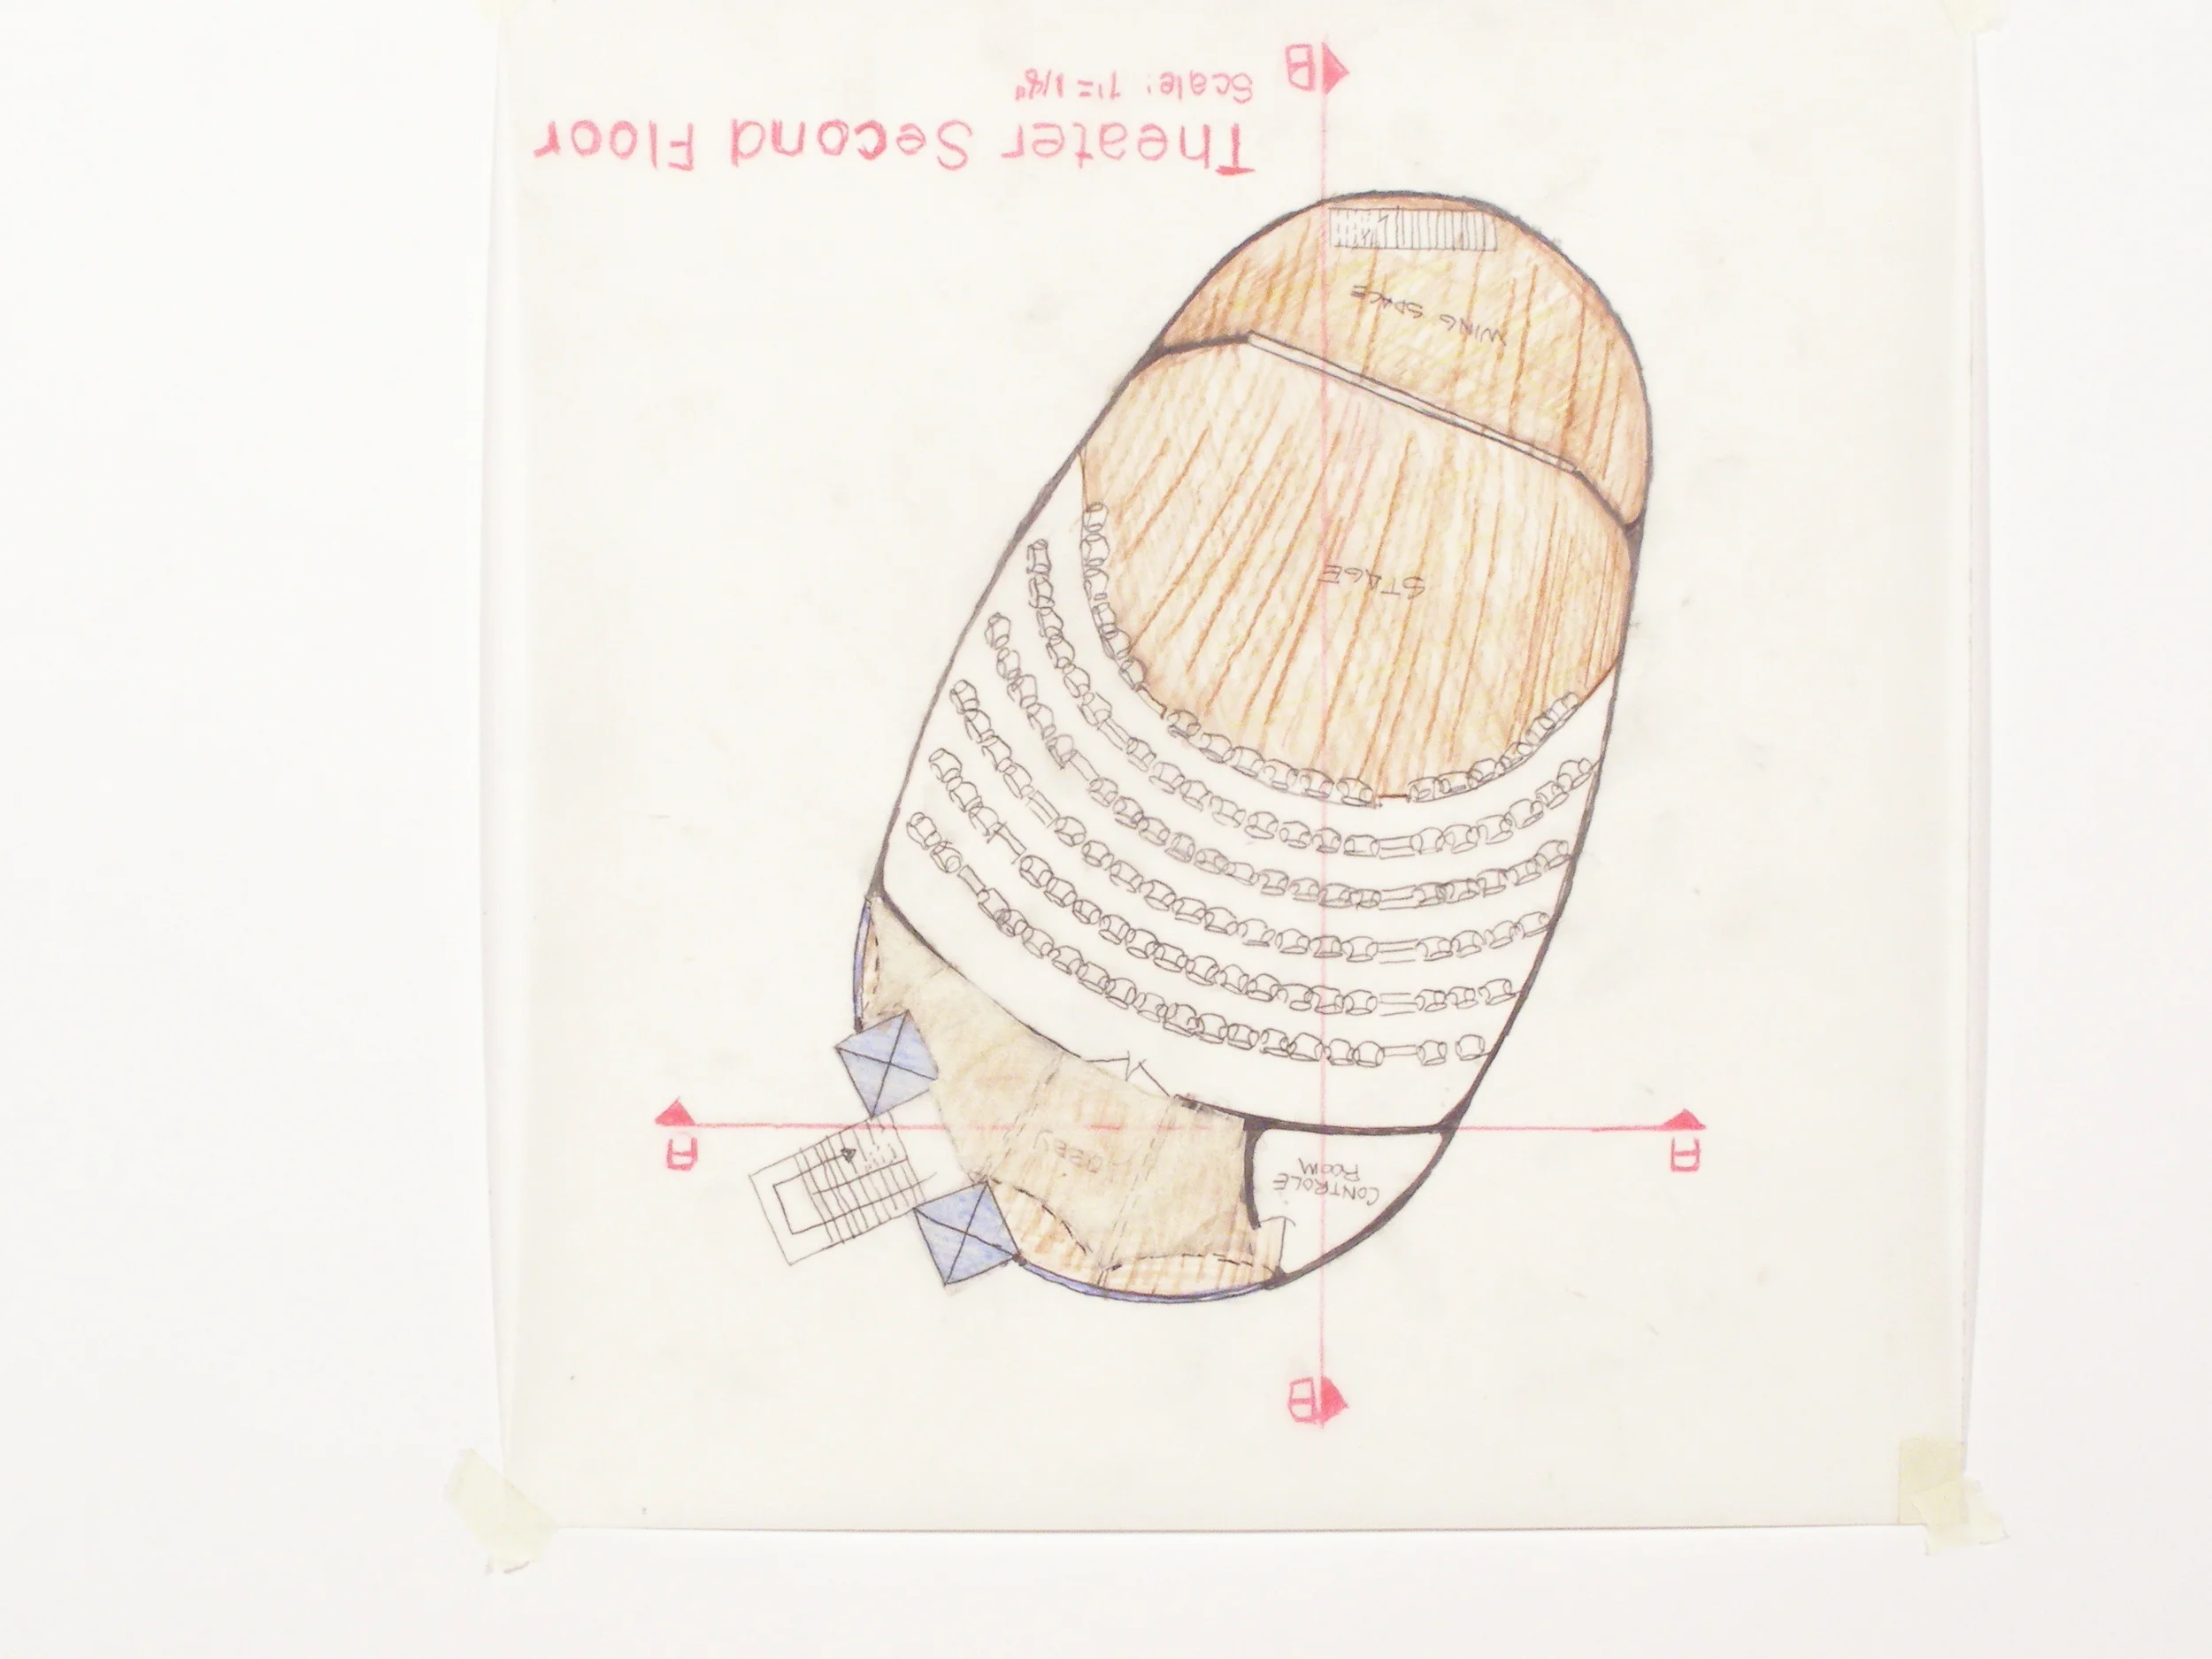 B
A
A
CONTROLE
ROOM
LOBBY
STAGE
WING SPACE
Theater Second Floor
Scale: 1'= 1/8"
B